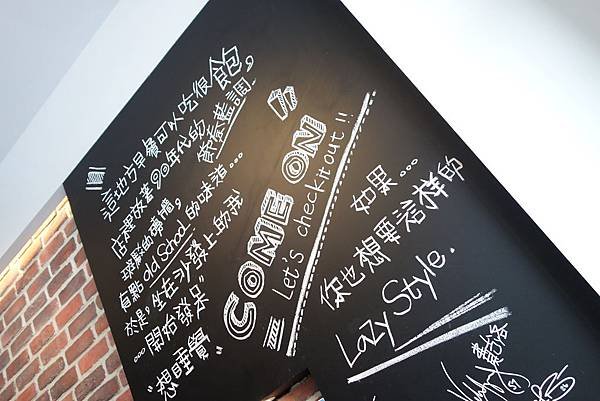 這地方早餐可以吃很飽，
店裡放著90年代的節奏藍調，
斑駁的牆，
自點old School的味道...
於是，坐在沙發上的我
...開始發呆"
"想睡覺"
COME ON
Let's check it out!!
如果...
你也想要這樣的
Lazy Style.